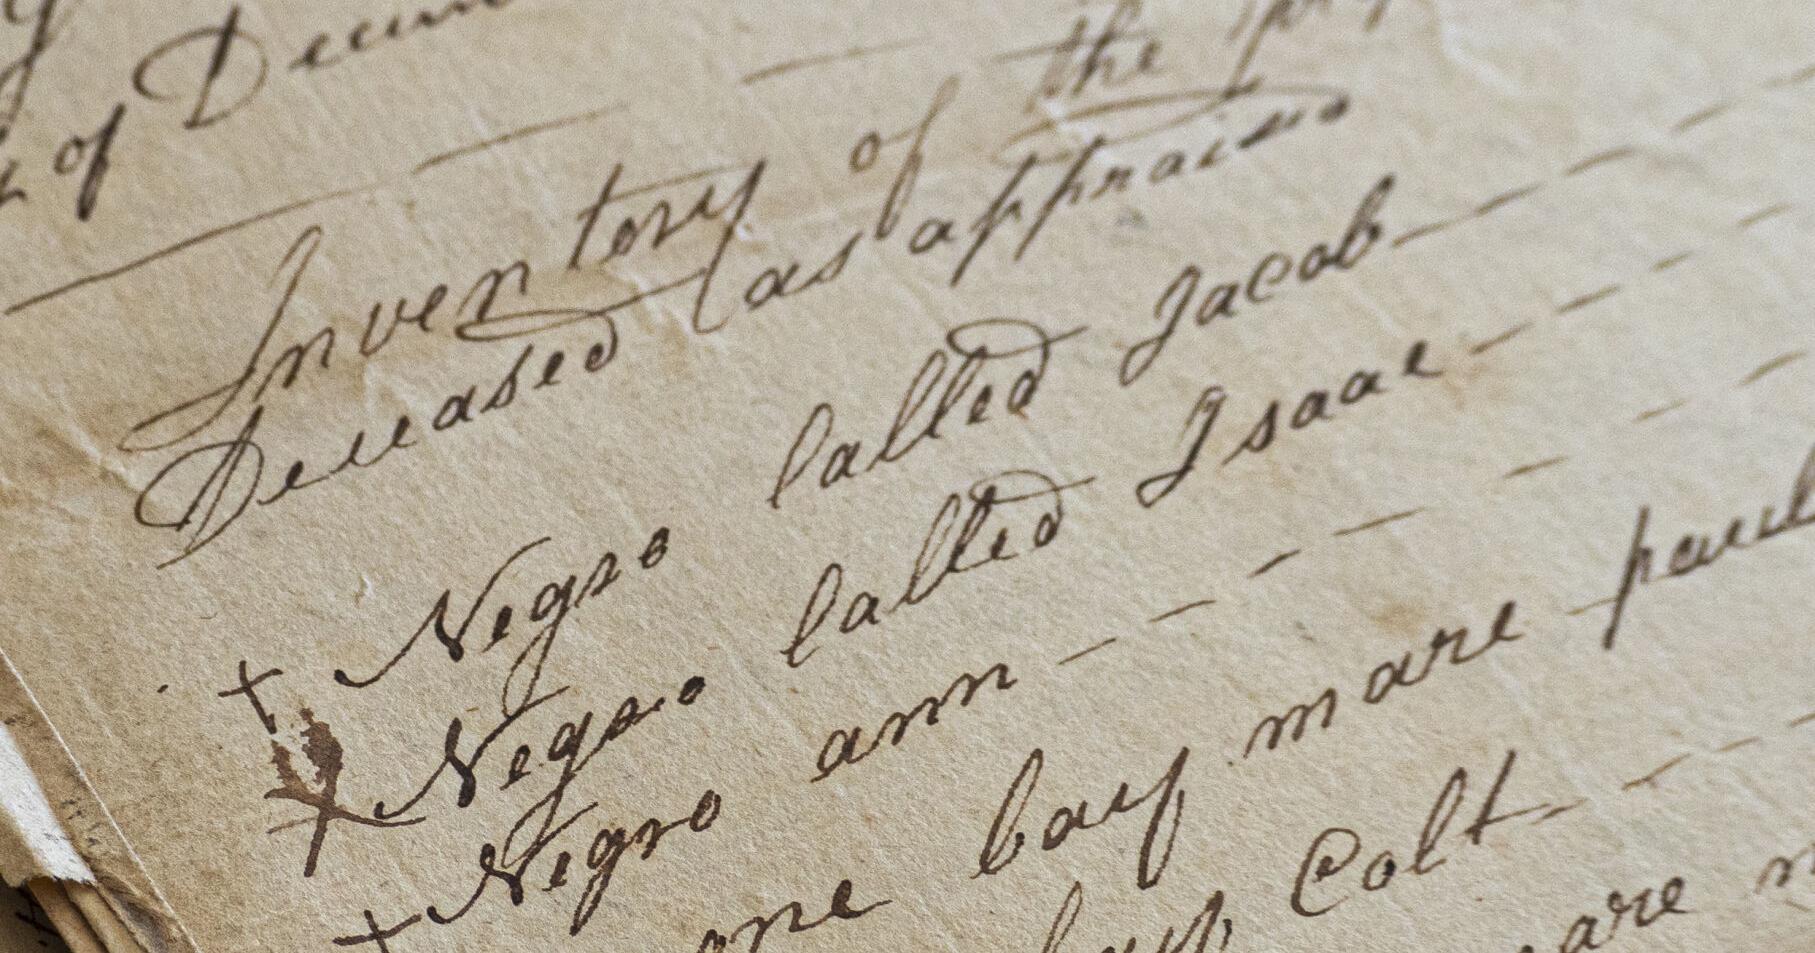 of Decem
Inventory of the
Deceased as appraise
+ Negro Called Jacob
+ Negro Called Isaac
+ Negro ann
one bay mare
bay Colt
are